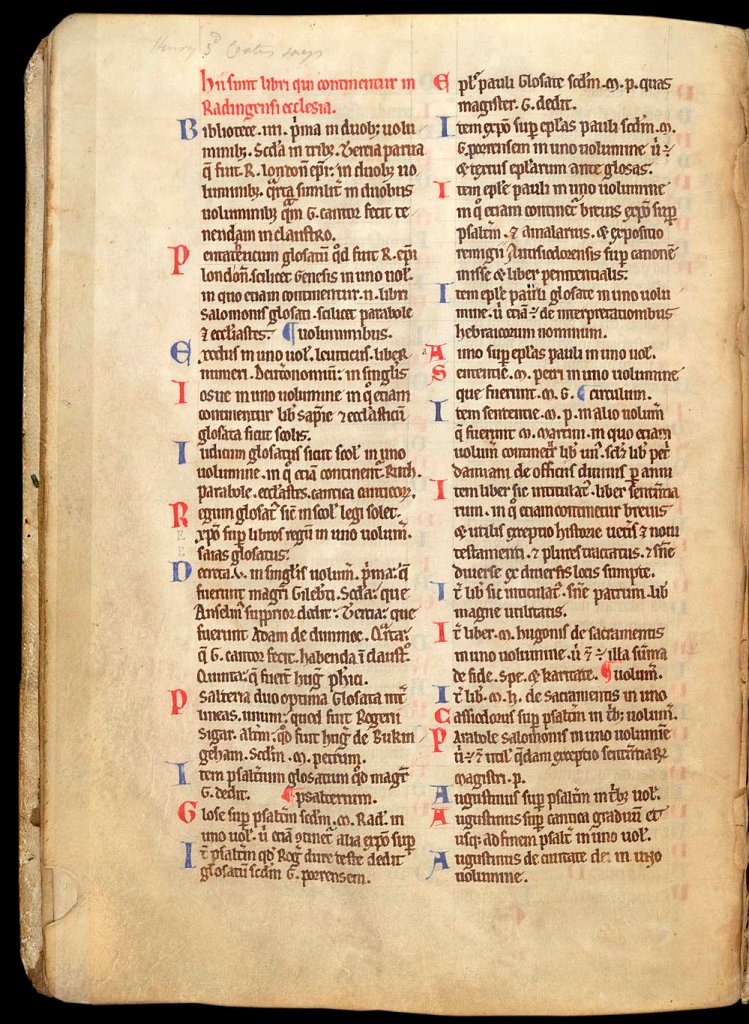 Henry 3d Coates says
Hii sunt libri qui continentur in
Radingensi ecclesia.
Bibliotece .iiii. p̃ma in duobꝫ uolu
minibꝫ. Scđa in tribꝫ. Tercia parua
q̃ fuit .R. london̄ ep̃i: in duobꝫ uo
luminibꝫ. q̃rta similit̃ in duobus
uoluminibꝫ q̃m G. cantor fecit te
nendam in claustro.
Pentateucum glosatū q̃d fuit R. ep̃i
london̄. scilicet Genesis in uno uol̃.
in quo etiam continentur .ii. libri
Salomonis glosati. scilicet parabole
⁊ eccl̃iastes. ¶ uoluminibus.
Exodus in uno uol̃. leuiticus. liber
numeri. Deut̃onomiū: in singlis
Iosue in uno uolumine in q̃ etiam
continentur lib̃ sapiẽ ⁊ eccl̃asticũ
glosata sicut scolis.
Iudicum glosatus sicut scol̃ in uno
uolumine. in q̃ etiā continent̃ Ruth.
parabole. eccl̃astes. cantica canticoꝝ.
Regum glosat̃ sic̃ in scol̃ legi solet.
xp̃o sup̃ libros regū in uno uolum̃.
saias glosatus.
Decreta .v. in singlis uolum̃. p̃ma: q̃
fuerunt magr̃i Gileb̃ti. Scđa: que
Anselm̃ supprior dedit. Tertia: que
fuerunt Adam de dunmoe. Q̃rta:
q̃ G. cantor fecit. habenda ĩ claust̃o.
Quinta: q̃ fuer̃t hug̃ phici.
Psalteria duo optima Glosata int̃
lineas. unum: quod fuit Rogerii
Sigar. alt̃m: q̃d fuit hug̃ de Bukin
geham. Scđm .M. petrum.
Item psalt̃ium glosatum q̃d magr̃
G. dedit. ¶ psalterium.
Glose sup̃ psalt̃m scđm .M. Rad̃. in
uno uol̃. ũ etiā ꝯtinet̃ alia exp̃o sup̃
It̃ psalt̃m qđ Rog̃ dure teste dedit
glosatū scđm G. porrensem.
Epl̃e pauli Glosate scđm .M. p. quas
magister .G. dedit.
Item exp̃o sup̃ ep̃las pauli scđm .M.
G. porrensem in uno uolumine ũ ÷
⁊ textus ep̃larum ante glosas.
Item ep̃le pauli in uno uolumine
in q̃ etiam continet̃ breuis exp̃o sup̃
psalt̃m. ⁊ amalarius. ⁊ expositio
remigii Autisiodorensis sup̃ canonē
misse ⁊ liber penitentialis.
Item ep̃le pauli glosate in uno uolu
mine. ũ etiā ÷ de interpretationibus
hebraicorum nominum.
Aimo sup̃ ep̃las pauli in uno uol̃.
Sententie .M. petri in uno uolumine
que fuerunt .M. G. ¶ circulum.
Item sententie .M. p. in alio uolum̃
q̃ fuerunt M. martini. in quo etiam
uolum̃ continet̃ lib̃ un̄. scl̃ꝫ lib̃ pet̃
damiani. de officiis diuinis p anni
Item liber sic intitulat̃. liber sententia
rum. in q̃ etiam continetur breuis
⁊ utilis exceptio historie uet̃is ⁊ noui
testamenti. ⁊ plures tractatus. ⁊ sñie
diuerse ex diuersis locis sumpte.
It̃ lib̃ sic intitulat̃. sñie patrum. lib̃
magne utilitatis.
It̃ liber .M. hugonis de sacramentis
in uno uolumine. ũ ⁊ ÷ illa sūma
de fide. Spe. ⁊ karitate. ¶ uolum̃.
It̃ lib̃ .M. H. de sacramentis in uno
Cassiodorus sup̃ psalt̃m in t̃bꝫ uolum̃.
Parabole salomonis in uno uolumiē
ũ ÷ ⁊ util̃ q̃dam exceptio sentētiaꝝ
magistri .p.
Augustinus sup̃ psalt̃m in t̃bꝫ uol̃.
Augustinus sup̃ cantica graduū et
usqꝫ ad finem psalt̃ in uno uol̃.
Augustinus de ciuitate dei in uno
uolumine.